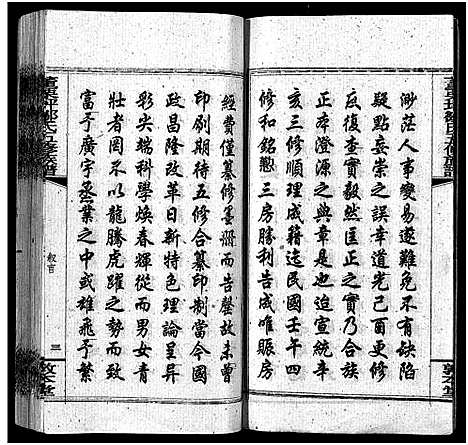 渺茫人事變易遼難免不有缺陷
疑點妄崇之誤幸道光己酉更修
反復查實毅然匡正之實乃合族
正本澄源之典章是也迨宣統辛
亥三修順理成籍迄民國壬午四
修和銘懃三房勝利告成唯賬房
經費僅纂修墨冊而告罄故未曾
印刷期待五修合纂印制當今國
政昌隆改革日新特色理論呈异
彩尖端科學煥春輝從而男女青
壯者罔不以龍騰虎躍之勢而致
富于廣宇丞業之中或雄飛予繁
敘言
三
敦本堂